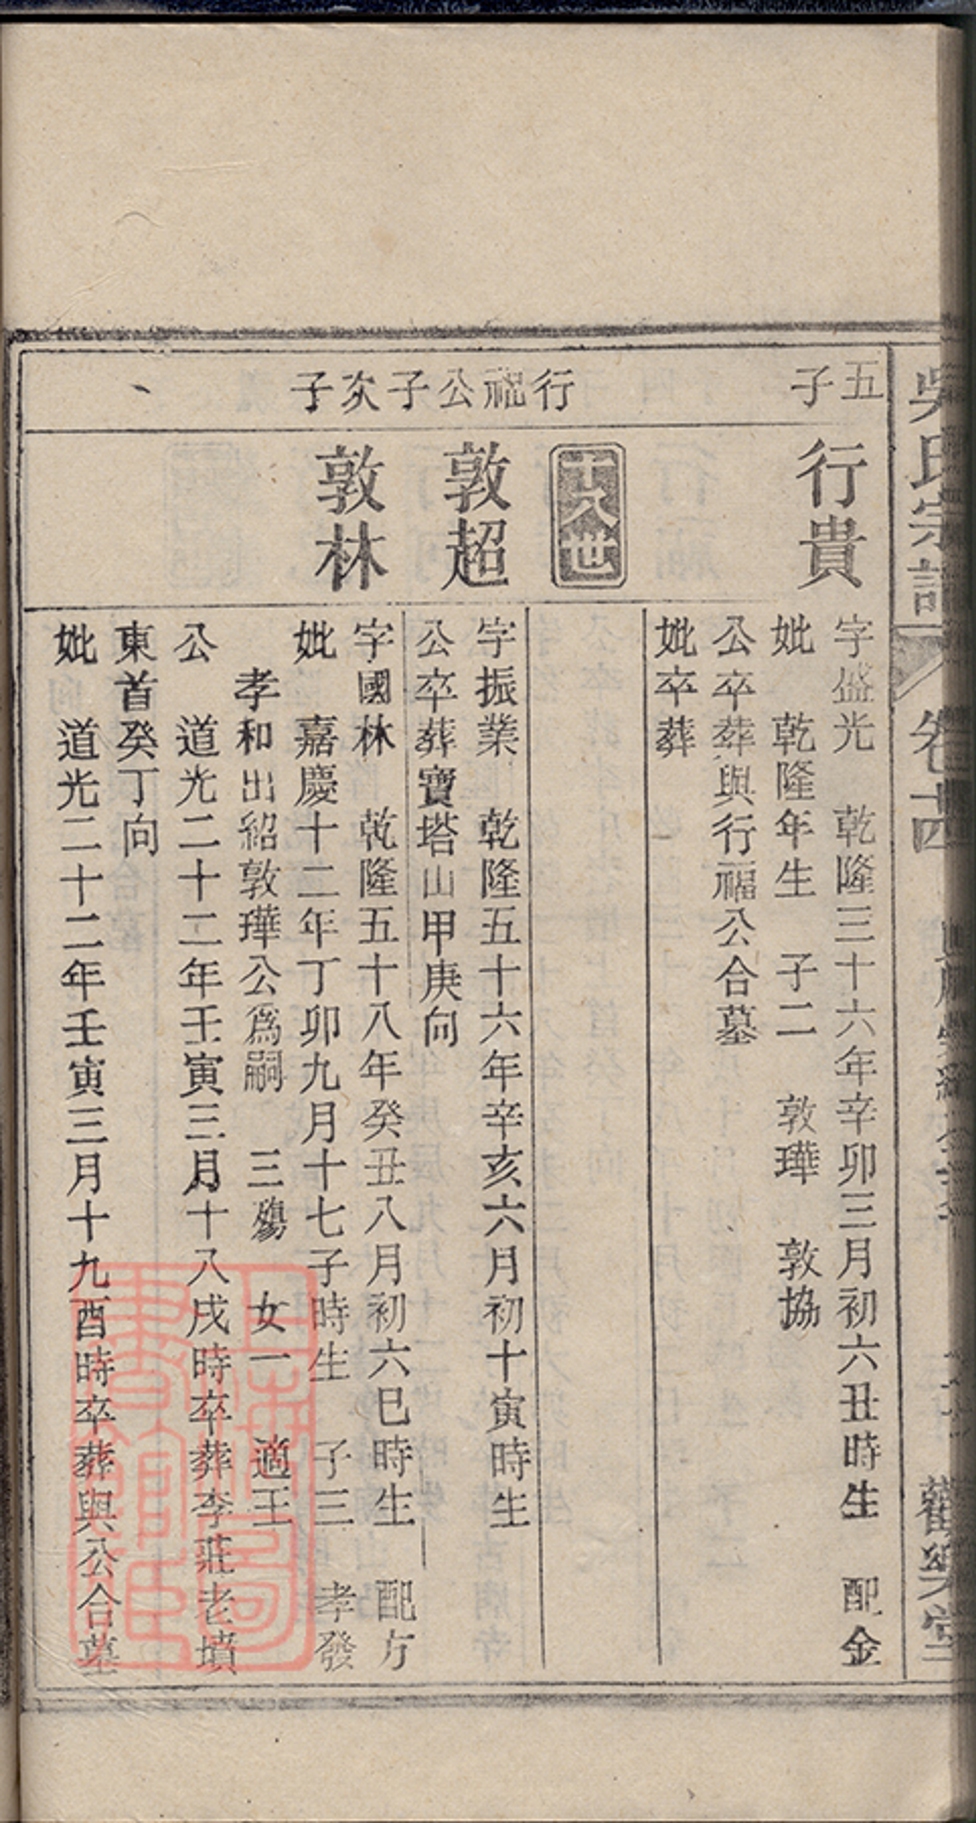 吳氏宗譜
卷十四
觀樂堂
五子
行貴
字盛光 乾隆三十六年辛卯三月初六丑時生 配金
妣 乾隆年生 子二 敦瑋 敦協
公卒葬與行福公合墓
妣卒葬
十八世
行福公子
敦超
字振業 乾隆五十六年辛亥六月初十寅時生
公卒葬寶塔山甲庚向
次子
敦林
字國林 乾隆五十八年癸丑八月初六巳時生 配方
妣 嘉慶十二年丁卯九月十七子時生 子三 孝發
孝和出紹敦瑋公爲嗣 三殤 女一 適王
公 道光二十二年壬寅三月十八戌時卒葬李莊老墳
東首癸丁向
妣 道光二十二年壬寅三月十九酉時卒葬與公合墓